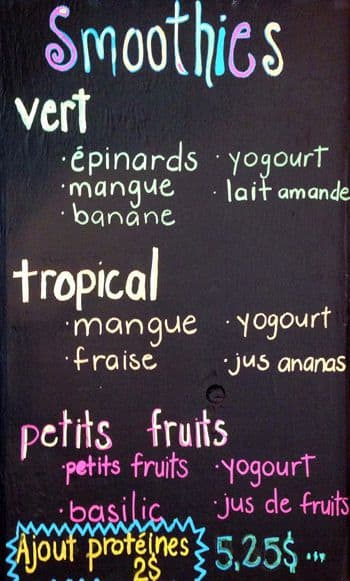 Smoothies
vert
· épinards · yogourt
· mangue · lait amande
· banane
tropical
· mangue · yogourt
· fraise · jus ananas
petits fruits
· petits fruits · yogourt
· basilic · jus de fruits
Ajout protéines 5,25$
2$